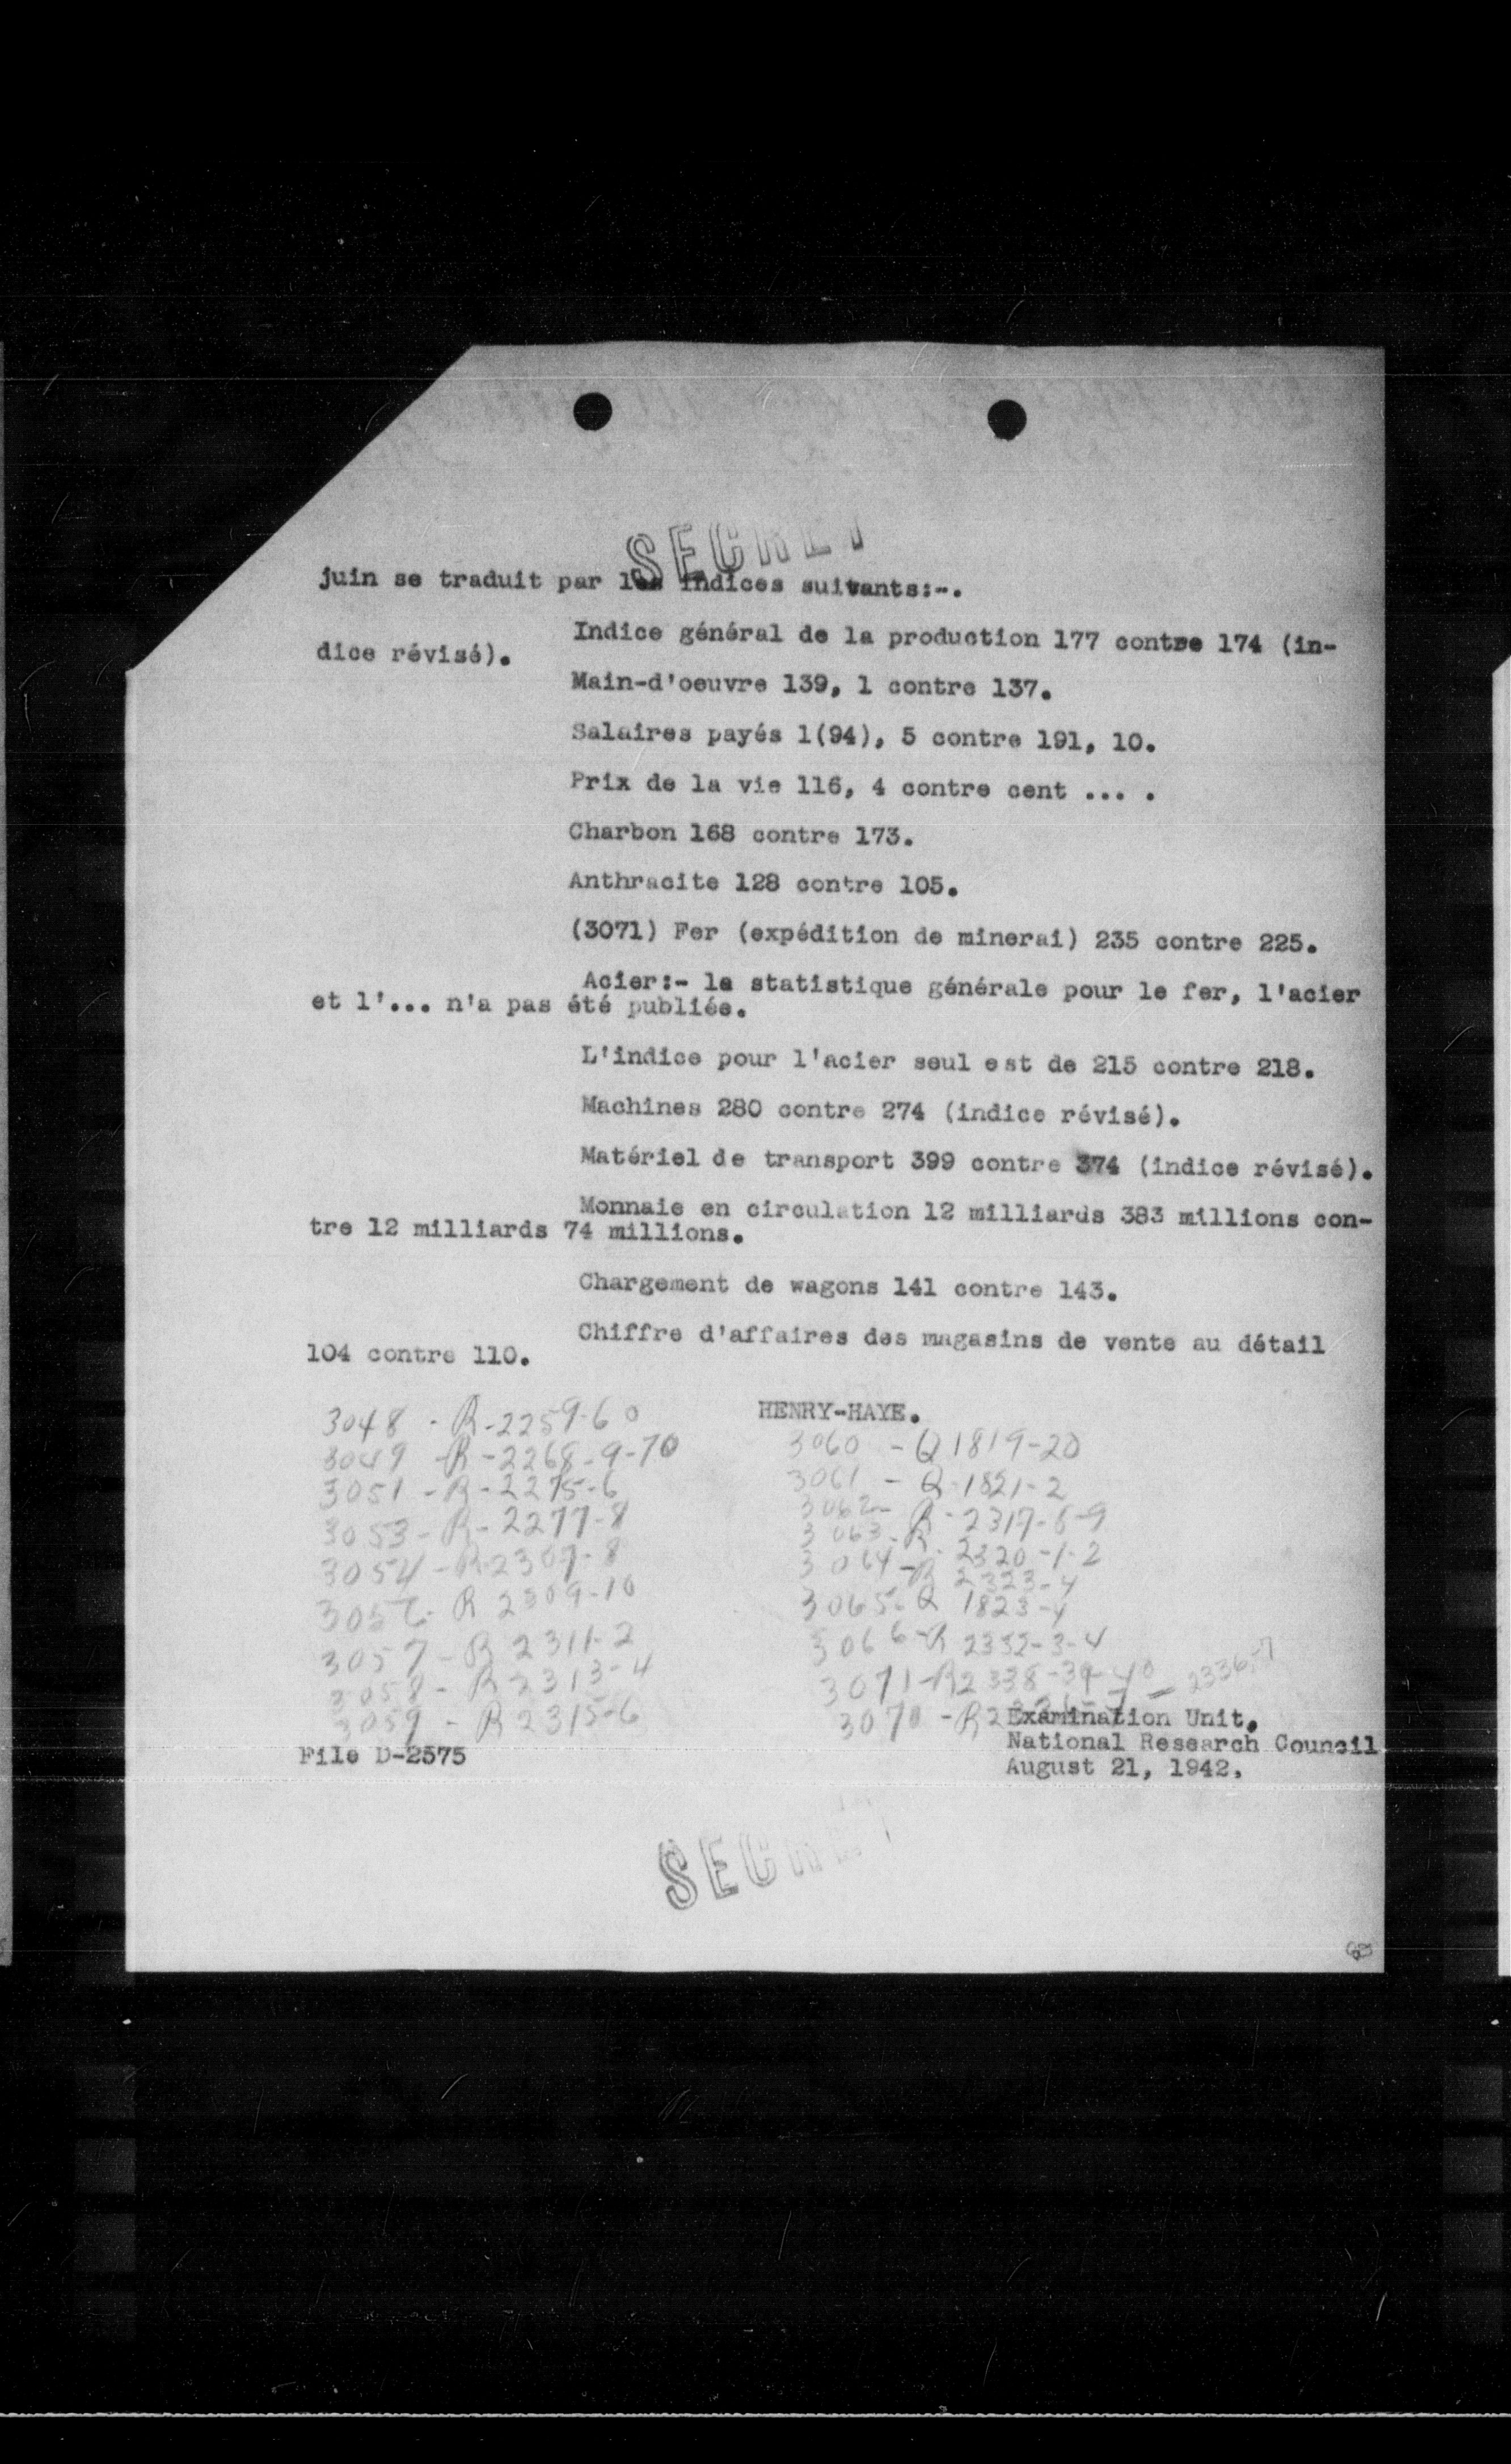 SECRET
juin se traduit par les indices suivants:-.
Indice général de la production 177 contre 174 (in-
dice révisé).
Main-d'oeuvre 139, 1 contre 137.
Salaires payés 1(94), 5 contre 191, 10.
Prix de la vie 116, 4 contre cent ... .
Charbon 168 contre 173.
Anthracite 128 contre 105.
(3071) Fer (expédition de minerai) 235 contre 225.
Acier:- la statistique générale pour le fer, l'acier
et l'... n'a pas été publiée.
L'indice pour l'acier seul est de 215 contre 218.
Machines 280 contre 274 (indice révisé).
Matériel de transport 399 contre 374 (indice révisé).
Monnaie en circulation 12 milliards 383 millions con-
tre 12 milliards 74 millions.
Chargement de wagons 141 contre 143.
Chiffre d'affaires des magasins de vente au détail
104 contre 110.
HENRY-HAYE.
3048 - R-2259-60
3049 -R-2268-9-70
3051 - R-2275-6
3053 - R-2277-8
3054 - R-2307-8
R 2309-10
3057 - R 2311-2
3058 - R 2313-4
3059 - R 2315-6
3060 - Q 1819-20
3061 - Q-1821-2
3062- R-2317-8-9
3063-R- 2320-1-2
3064-R 2323-4
3065- Q 1823-4
3066-R 2332-3-4
3071-R2338-39-40 - 2336-7
3070 -R2
Examination Unit.
National Research Council
August 21, 1942.
File D-2575
SECRET